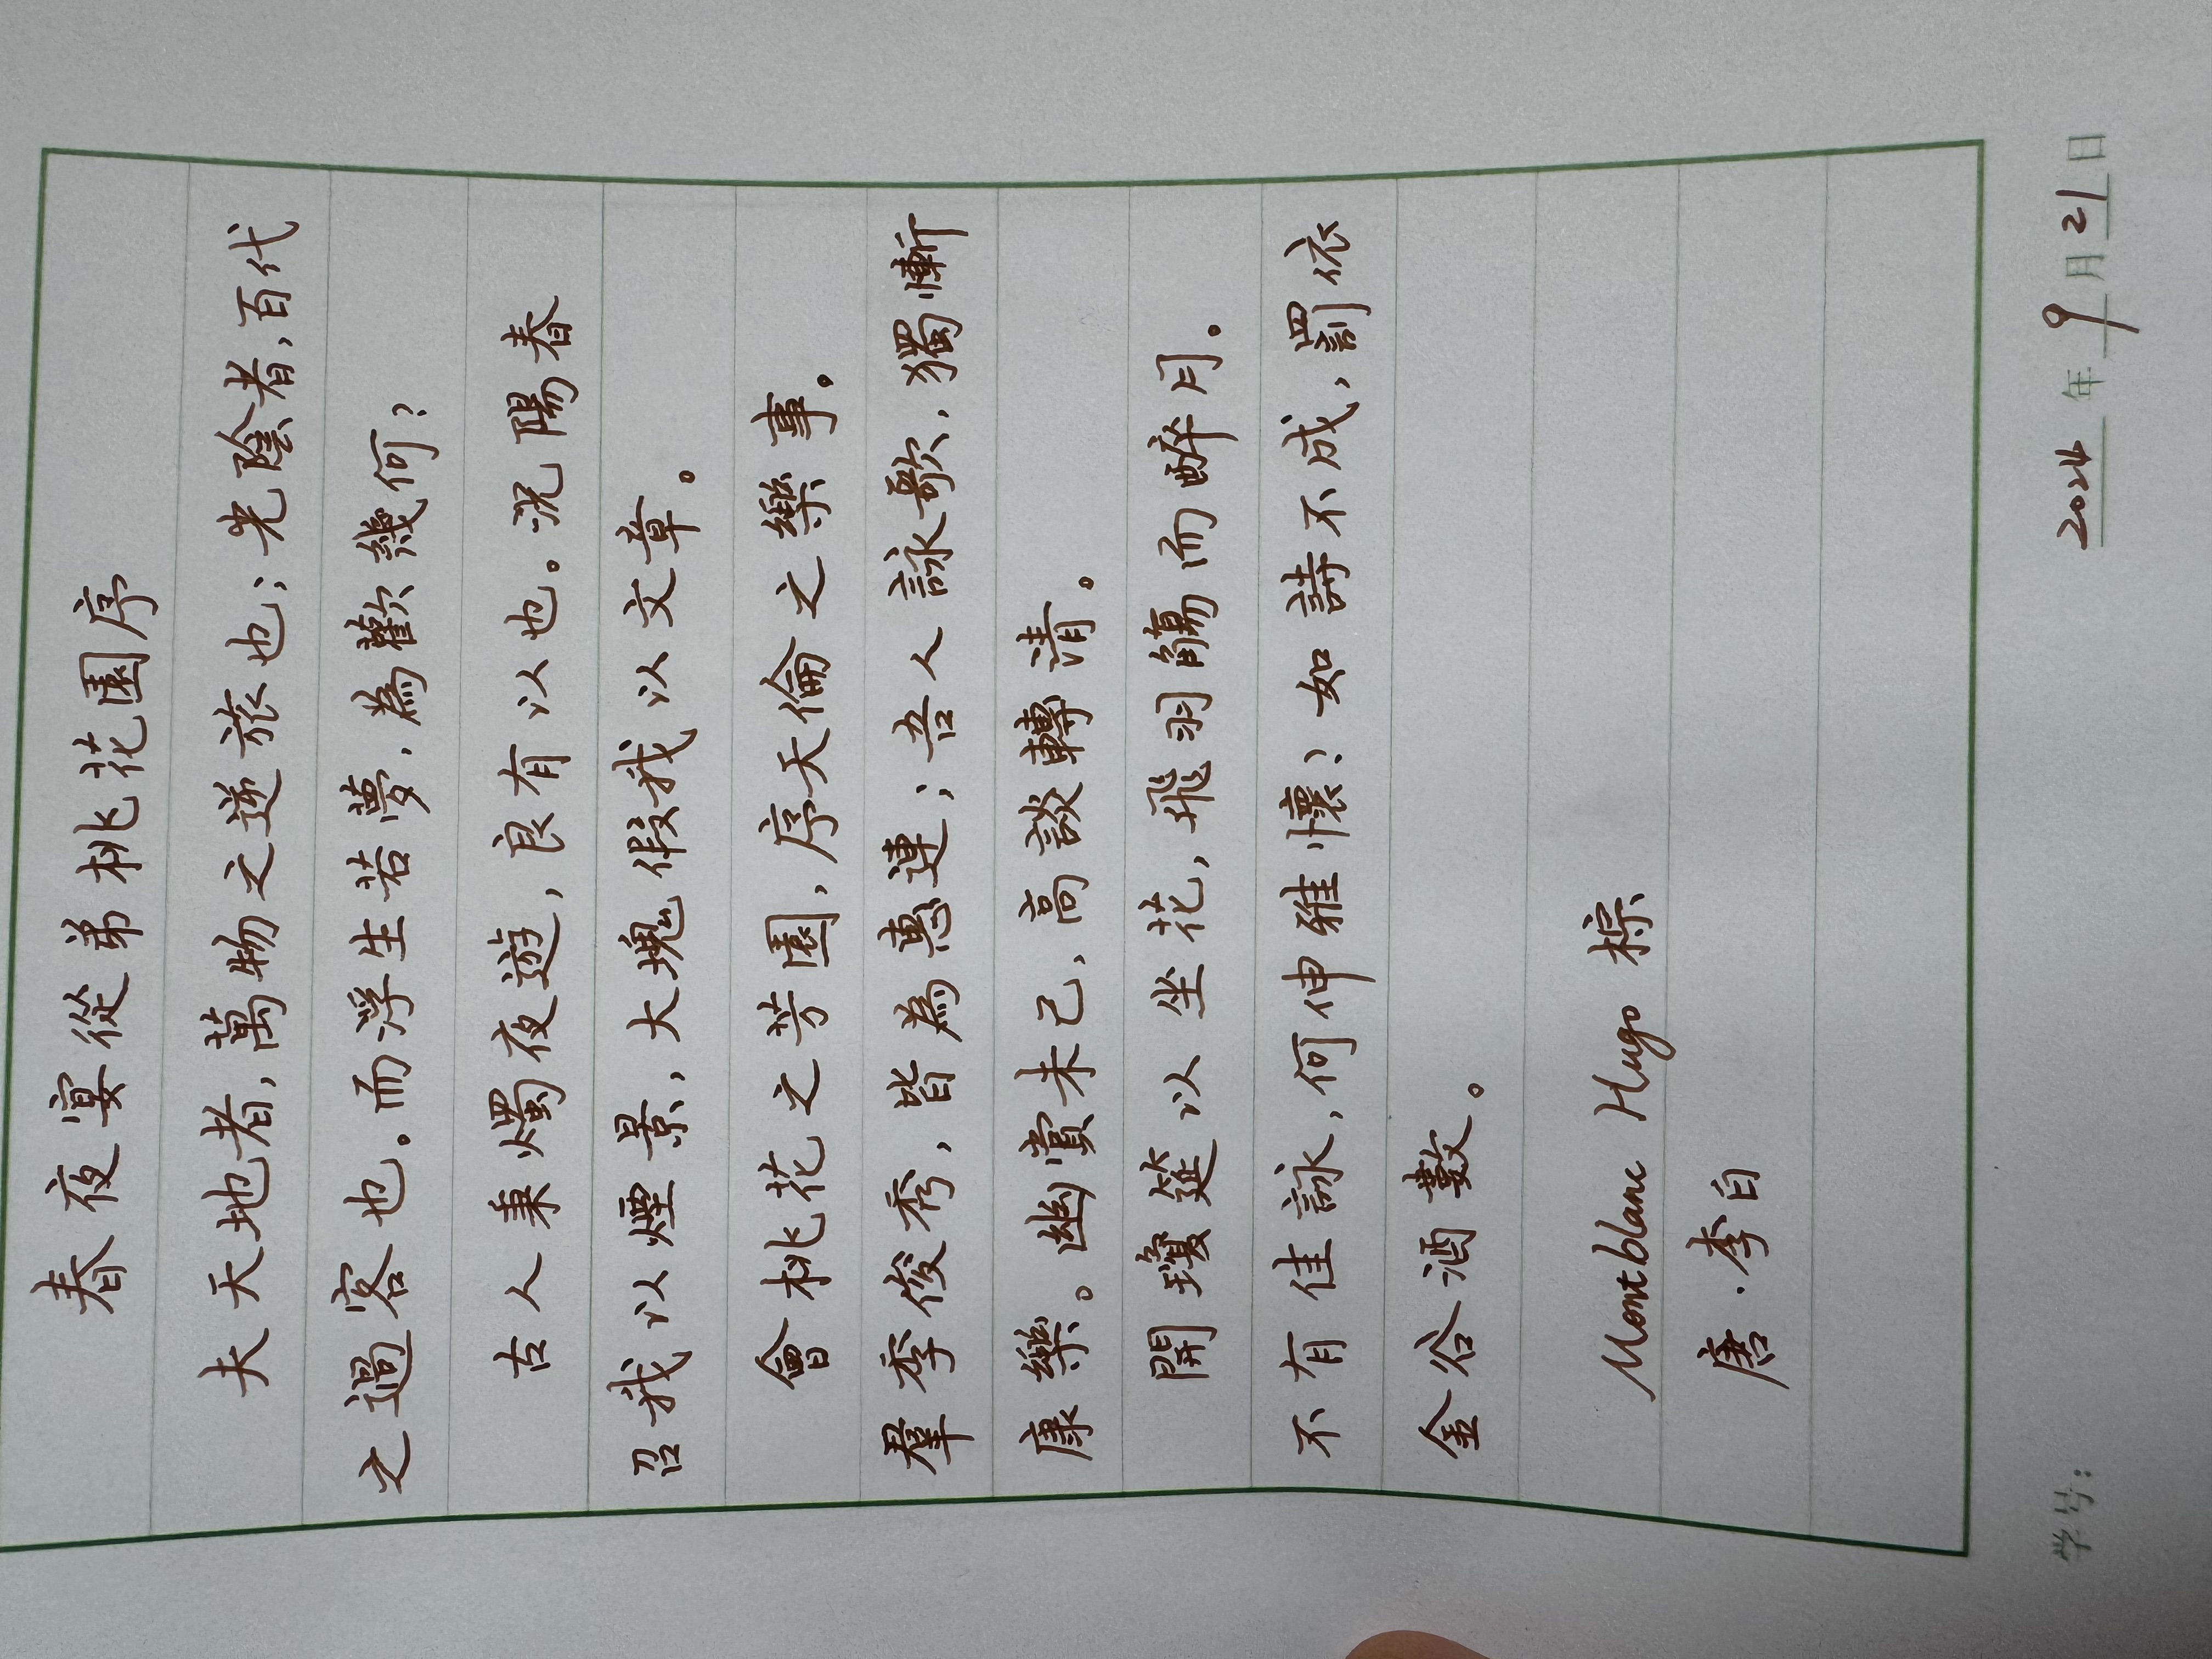 春夜宴從弟桃花園序
夫天地者，萬物之逆旅也；光陰者，百代
之過客也。而浮生若夢，為歡幾何？
古人秉燭夜遊，良有以也。況陽春
召我以煙景，大塊假我以文章。
會桃花之芳園，序天倫之樂事。
羣季俊秀，皆為惠連；吾人詠歌，獨慚
康樂。幽賞未已，高談轉清。
開瓊筵以坐花，飛羽觴而醉月。
不有佳詠，何伸雅懷？如詩不成，罰依
金谷酒數。
Montblanc Hugo 棕
唐·李白
学号：
2024年9月21日